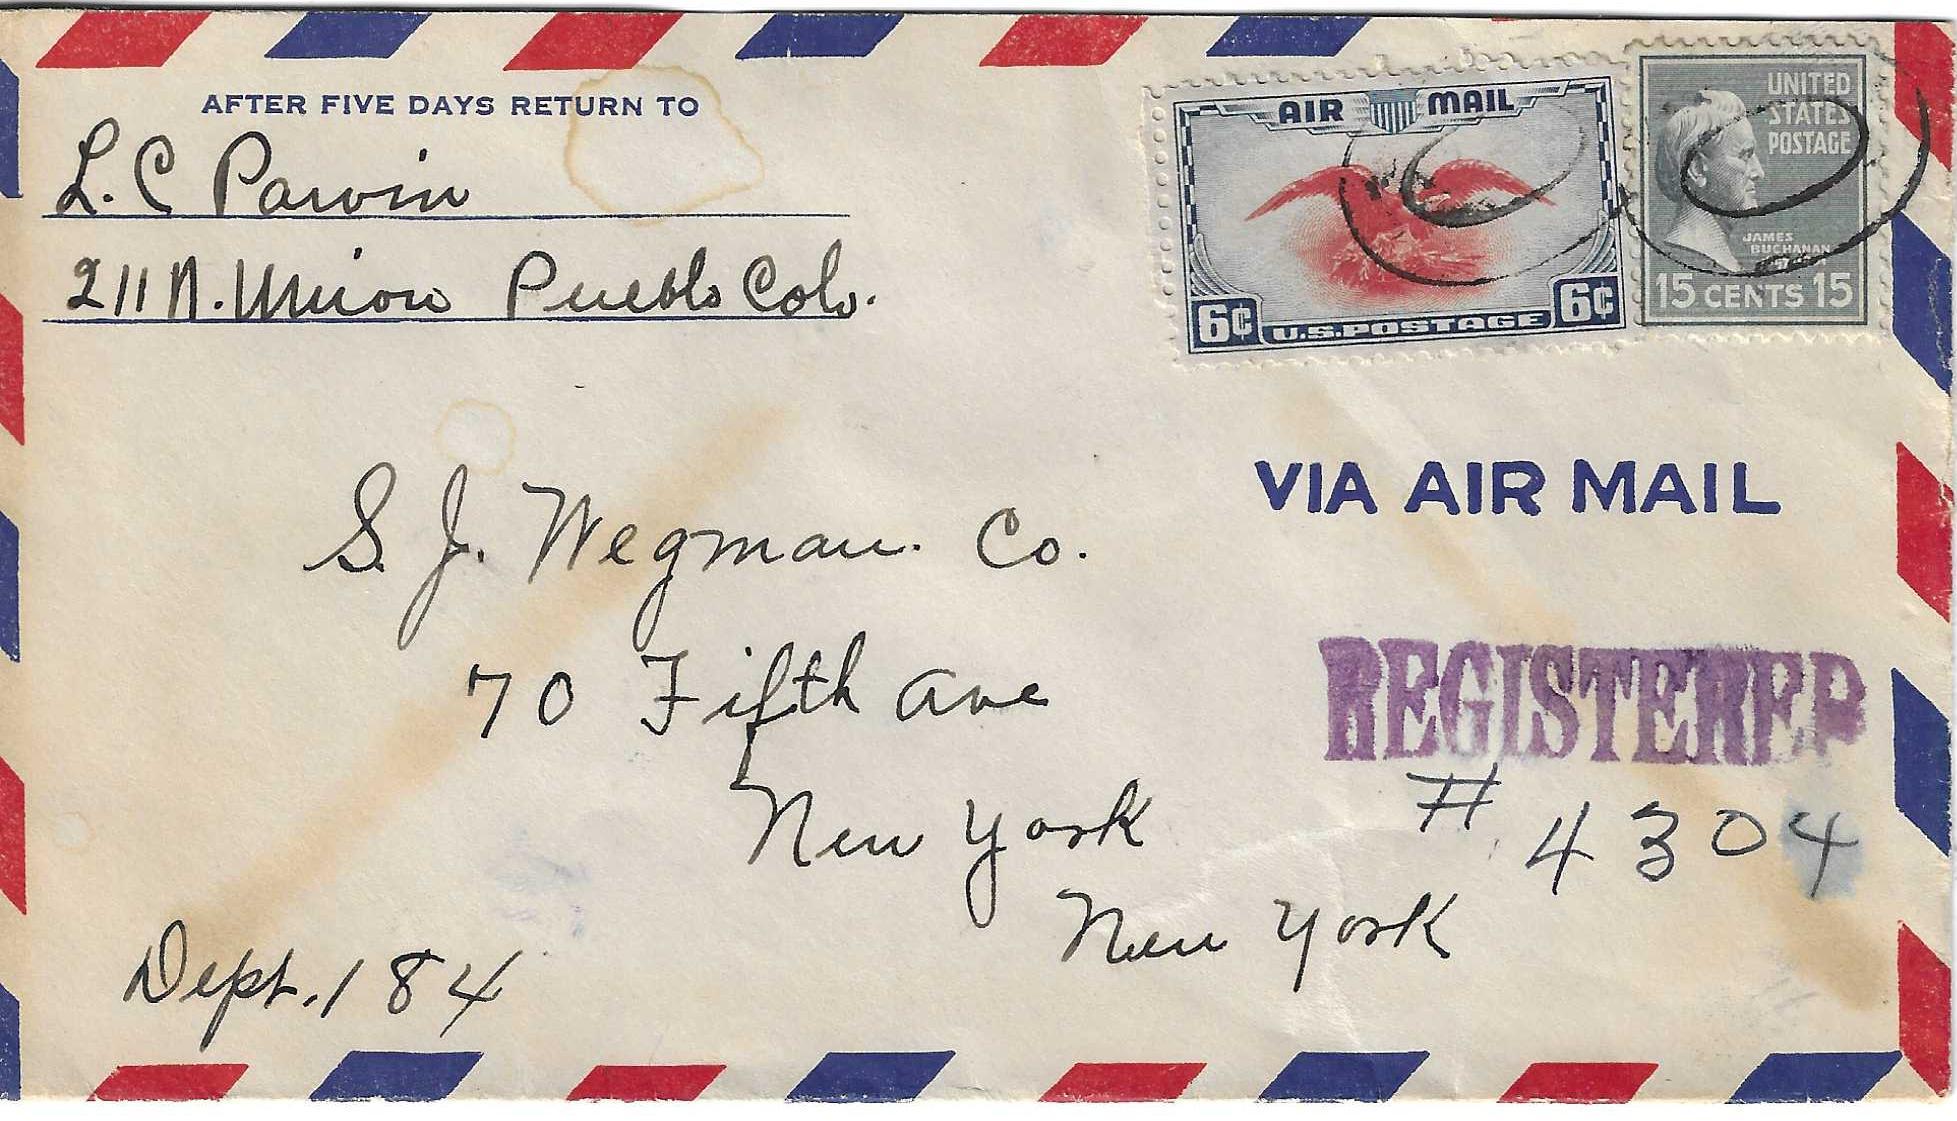 AFTER FIVE DAYS RETURN TO
L. C Parvin
211 N. Union Pueblo Colo.
AIR MAIL
6¢ U.S. POSTAGE 6¢
UNITED
STATES
POSTAGE
JAMES
BUCHANAN
15 CENTS 15
VIA AIR MAIL
S. J. Wegman. Co.
70 Fifth Ave
New York
New York
REGISTERED
# 4304
Dept. 184